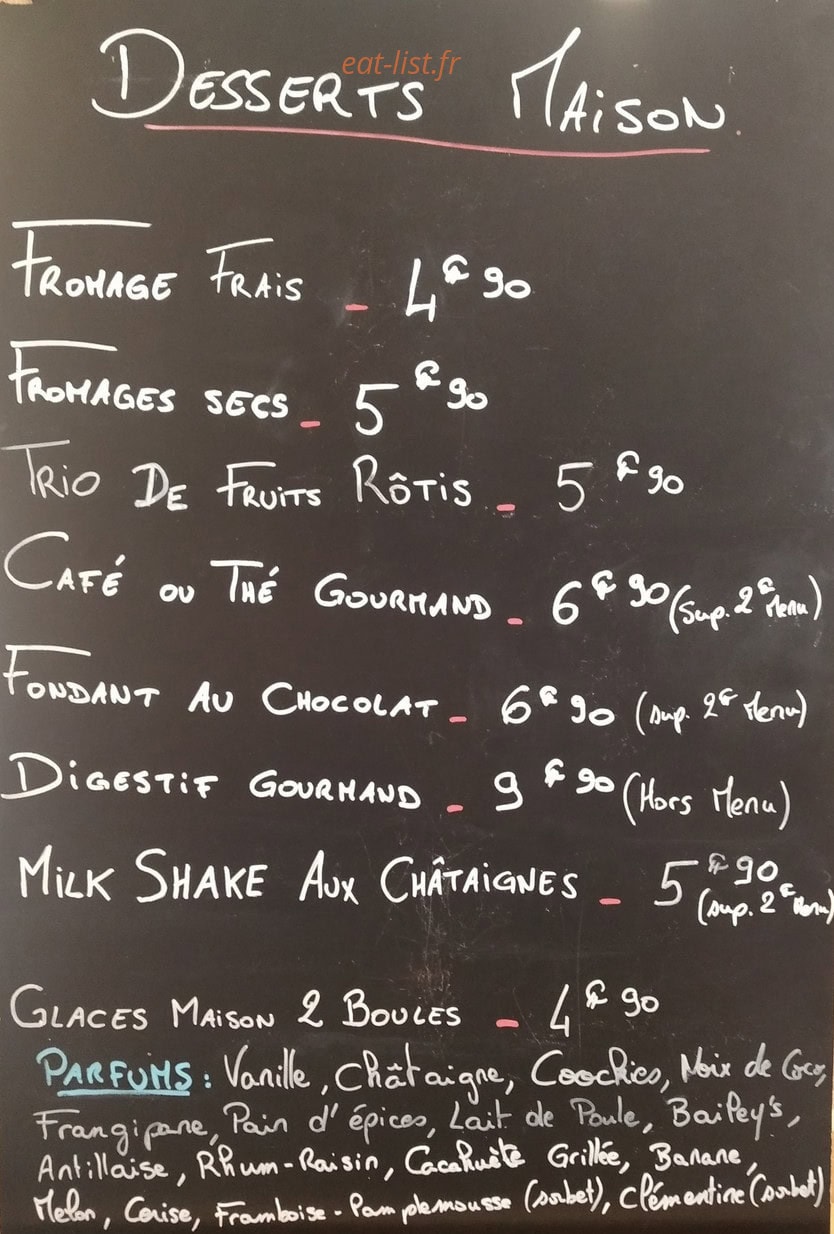 eat-list.fr
DESSERTS MAISON.
FROMAGE FRAIS - 4€90
FROMAGES SECS - 5€90
TRIO DE FRUITS RÔTIS - 5€90
CAFÉ OU THÉ GOURMAND - 6€90 (Sup. 2€ Menu)
FONDANT AU CHOCOLAT - 6€90 (sup. 2€ Menu)
DIGESTIF GOURMAND - 9€90 (Hors Menu)
MILK SHAKE AUX CHÂTAIGNES - 5€90
(sup. 2€ Menu)
GLACES MAISON 2 BOULES - 4€90
PARFUMS : Vanille, Châtaigne, Coockies, Noix de Coco,
Frangipane, Pain d'épices, Lait de Poule, Bailey's,
Antillaise, Rhum-Raisin, Cacahuète Grillée, Banane,
Melon, Cerise, Framboise-Pamplemousse (sorbet), Clémentine (sorbet)